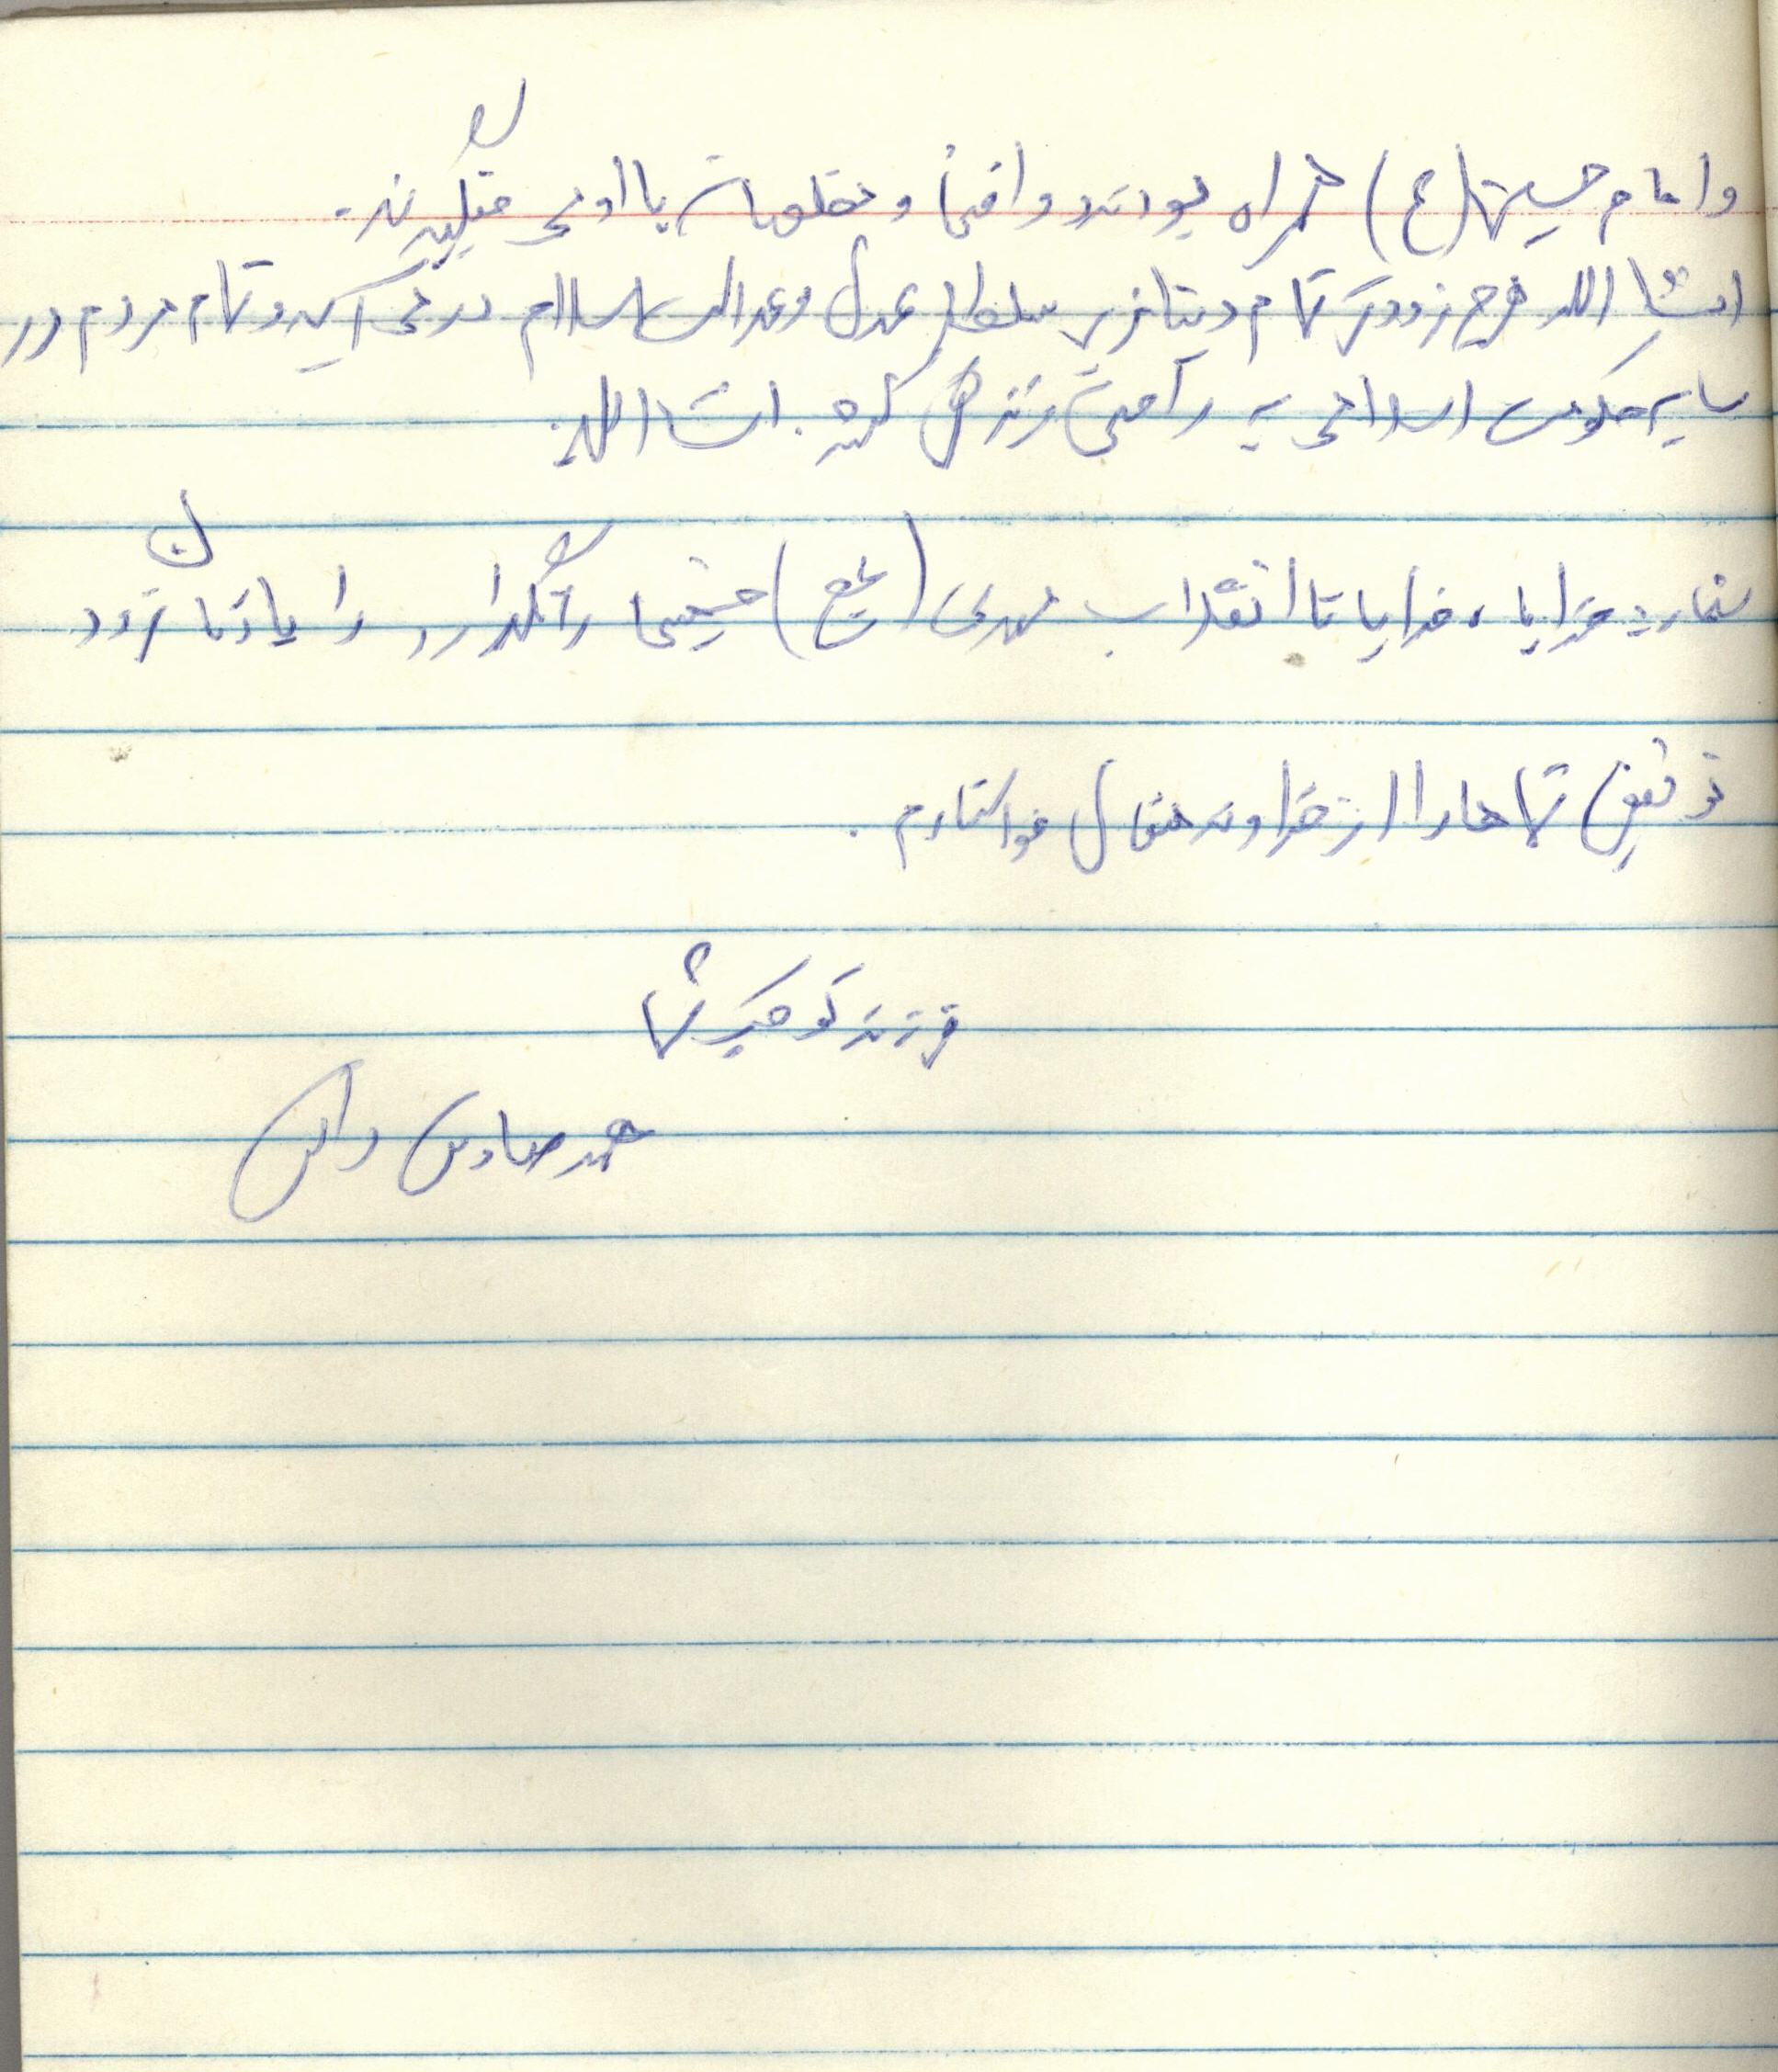 و امام حسین (ع) همراه بودند و افتخار و مظلومانه با او می جنگیدند.
انشا الله هر چه زودتر تمام دنیا زیر سلطه عدل و عدالت اسلام در می آید و تمام مردم در
سایه حکومت اسلامی به راحتی زندگی کنند. انشا الله.
شعار: خدایا، خدایا تا انقلاب مهدی (عج) خمینی را نگهدار را یادتان نرود
توفیق شماها را از خداوند متعال خواستارم.
فرزند کوچک شما
محمد صادق